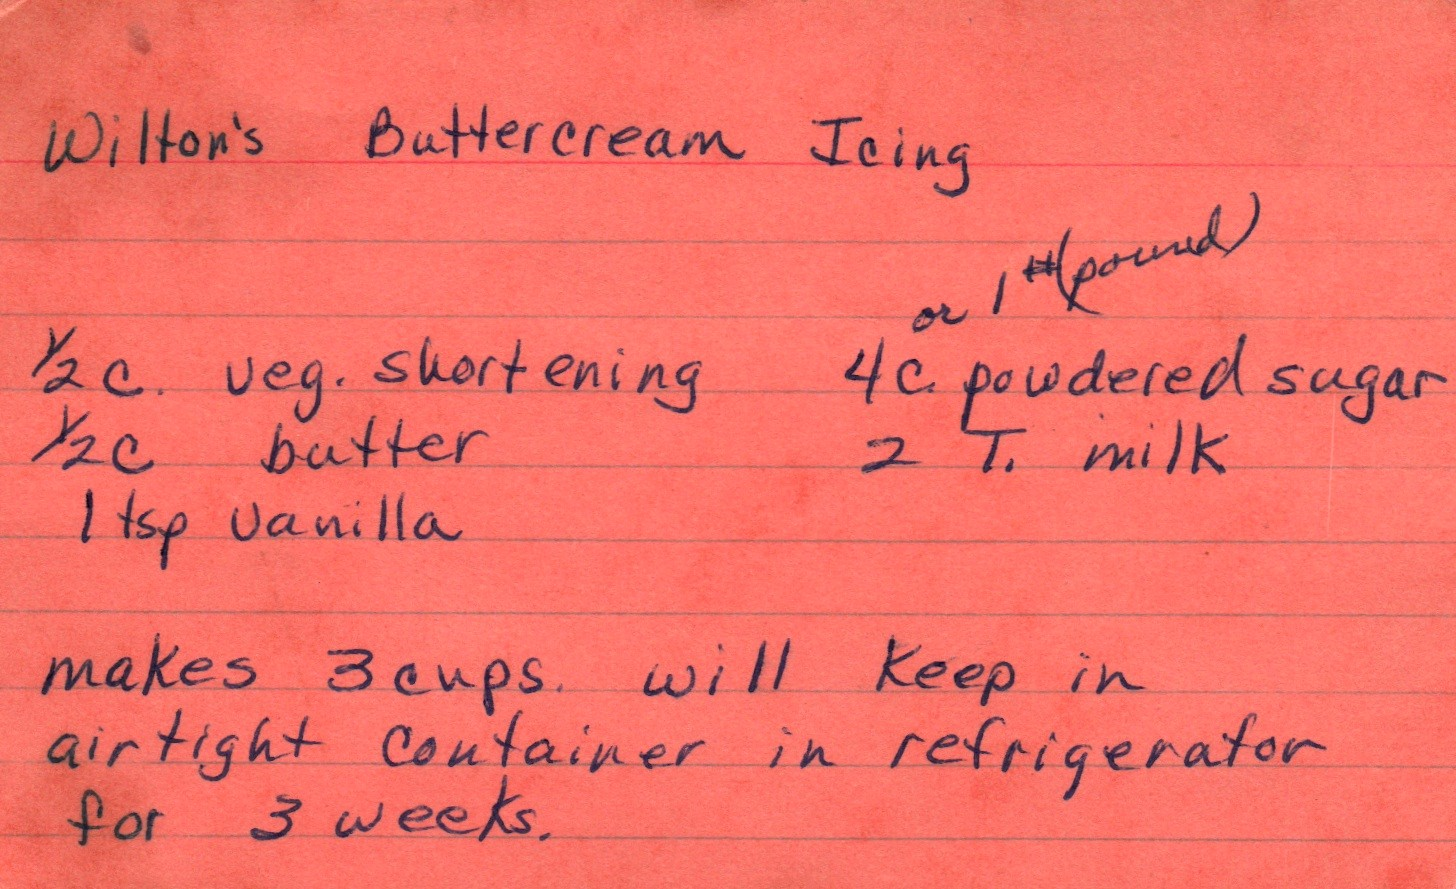 Wilton's Buttercream Icing
or 1 #(pound)
1/2 c. veg. shortening 4 c. powdered sugar
1/2 c butter 2 T. milk
1 tsp vanilla
makes 3 cups. will keep in
airtight container in refrigerator
for 3 weeks.